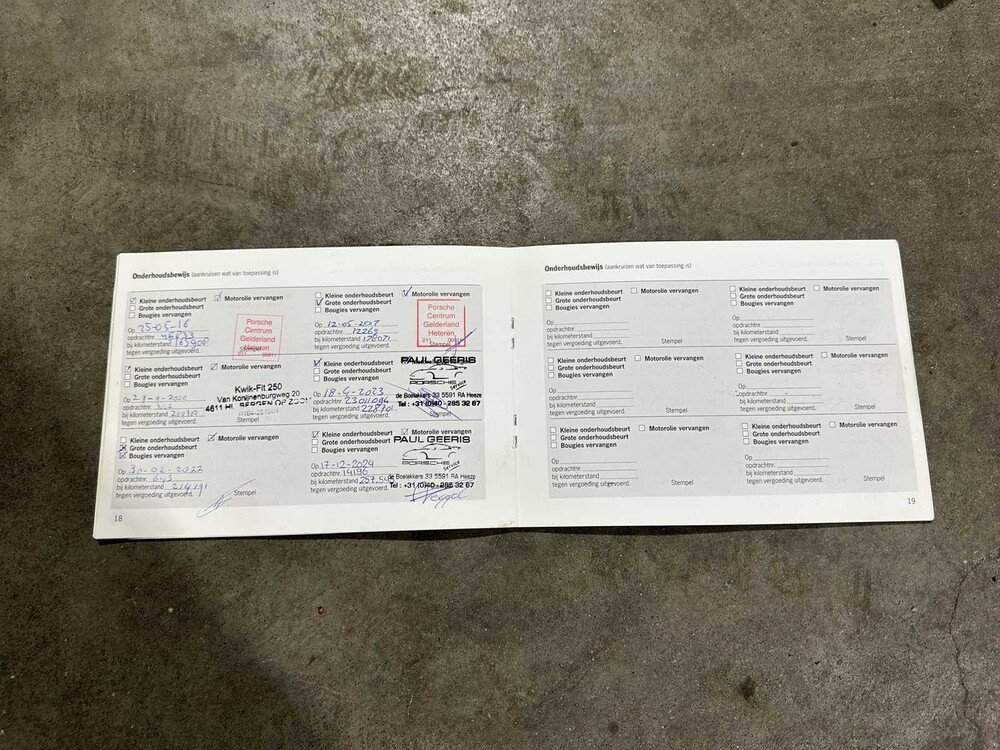 Onderhoudsbewijs (aankruisen wat van toepassing is)
Kleine onderhoudsbeurt Motorolie vervangen
Grote onderhoudsbeurt
Bougies vervangen
Op 25-05-16
opdrachtnr.
bij kilometerstand
tegen vergoeding uitgevoerd. Stempel
Porsche
Centrum
Gelderland
Heteren
Kleine onderhoudsbeurt Motorolie vervangen
Grote onderhoudsbeurt
Bougies vervangen
Op 12-05-2017
opdrachtnr.
bij kilometerstand 178071
tegen vergoeding uitgevoerd. Stempel
Porsche
Centrum
Gelderland
Heteren
Kleine onderhoudsbeurt Motorolie vervangen
Grote onderhoudsbeurt
Bougies vervangen
Op
opdrachtnr.
bij kilometerstand
tegen vergoeding uitgevoerd. Stempel
Kwik-Fit 250
Van Konijnenburgweg 20
4611 HL BERGEN OP ZOOM
Kleine onderhoudsbeurt
Grote onderhoudsbeurt
Bougies vervangen
Op 18-4-2023
opdrachtnr. 23011094
bij kilometerstand 228701
tegen vergoeding uitgevoerd.
PAUL GEERIS
PORSCHE
Service
de Boelakkers 33 5591 RA Heeze
Tel : +31 (0)40 - 285 32 67
Kleine onderhoudsbeurt Motorolie vervangen
Grote onderhoudsbeurt
Bougies vervangen
Op 30-02-2022
opdrachtnr.
bij kilometerstand
tegen vergoeding uitgevoerd. Stempel
Kleine onderhoudsbeurt Motorolie vervangen
Grote onderhoudsbeurt
Bougies vervangen
Op 17-12-2024
opdrachtnr. 14196
bij kilometerstand
tegen vergoeding uitgevoerd.
PAUL GEERIS
PORSCHE
Service
de Boelakkers 33 5591 RA Heeze
Tel : +31 (0)40 - 285 32 67
18
Onderhoudsbewijs (aankruisen wat van toepassing is)
Kleine onderhoudsbeurt Motorolie vervangen
Grote onderhoudsbeurt
Bougies vervangen
Op
opdrachtnr.
bij kilometerstand
tegen vergoeding uitgevoerd. Stempel
Kleine onderhoudsbeurt Motorolie vervangen
Grote onderhoudsbeurt
Bougies vervangen
Op
opdrachtnr.
bij kilometerstand
tegen vergoeding uitgevoerd. Stempel
Kleine onderhoudsbeurt Motorolie vervangen
Grote onderhoudsbeurt
Bougies vervangen
Op
opdrachtnr.
bij kilometerstand
tegen vergoeding uitgevoerd. Stempel
Kleine onderhoudsbeurt Motorolie vervangen
Grote onderhoudsbeurt
Bougies vervangen
Op
opdrachtnr.
bij kilometerstand
tegen vergoeding uitgevoerd. Stempel
Kleine onderhoudsbeurt Motorolie vervangen
Grote onderhoudsbeurt
Bougies vervangen
Op
opdrachtnr.
bij kilometerstand
tegen vergoeding uitgevoerd. Stempel
Kleine onderhoudsbeurt Motorolie vervangen
Grote onderhoudsbeurt
Bougies vervangen
Op
opdrachtnr.
bij kilometerstand
tegen vergoeding uitgevoerd. Stempel
19